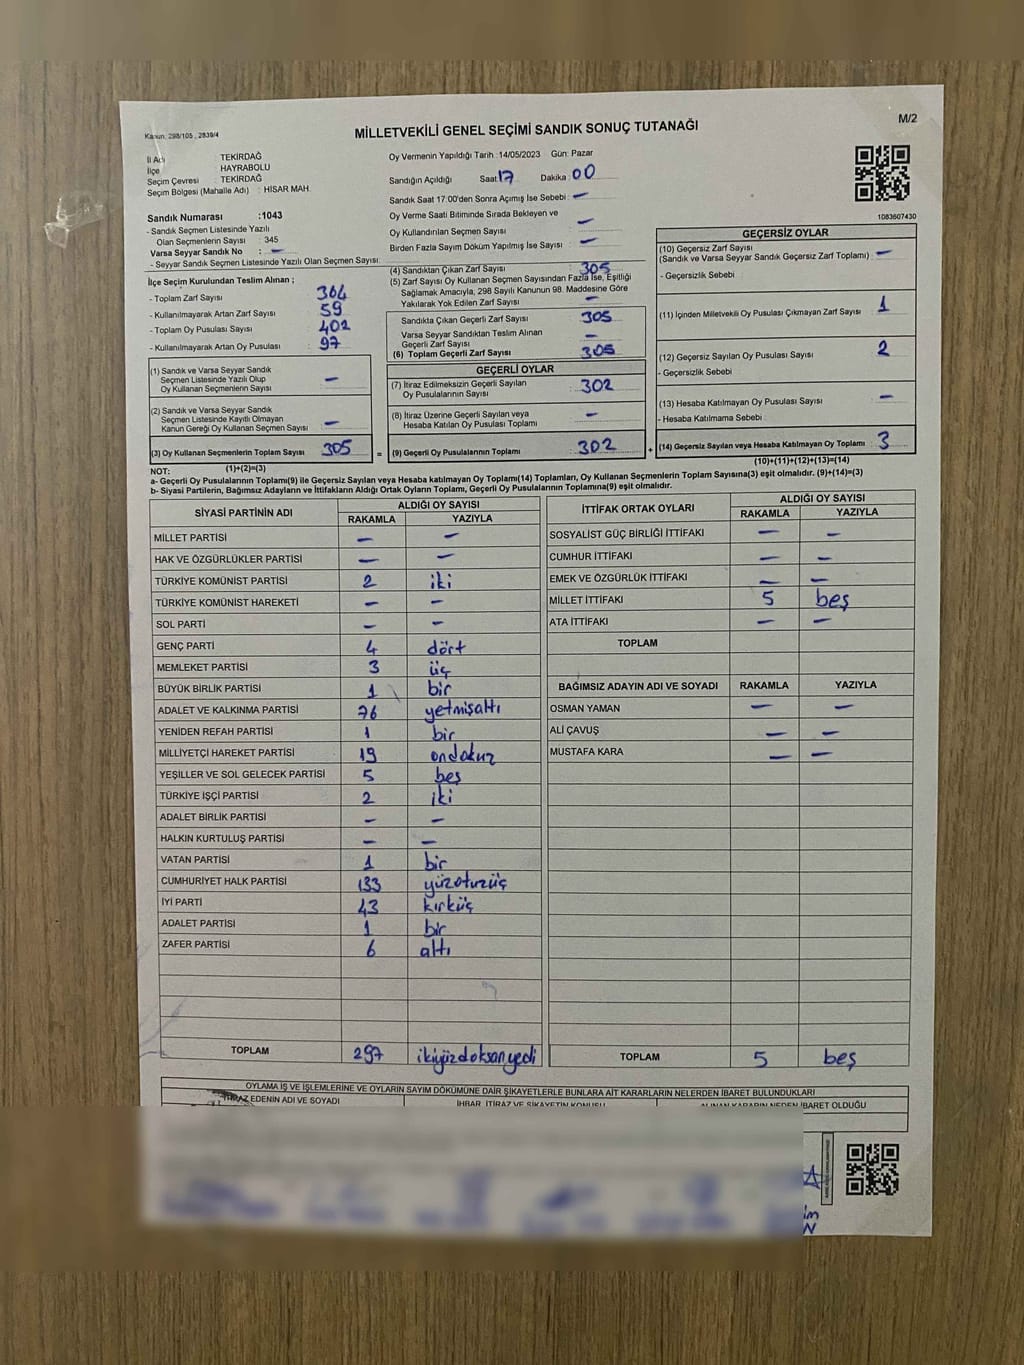 Kanun: 298/105 , 2839/4
MİLLETVEKİLİ GENEL SEÇİMİ SANDIK SONUÇ TUTANAĞI
M/2
İl Adı : TEKİRDAĞ
İlçe : HAYRABOLU
Seçim Çevresi : TEKİRDAĞ
Seçim Bölgesi (Mahalle Adı) : HİSAR MAH.
Oy Vermenin Yapıldığı Tarih :14/05/2023 Gün: Pazar
Sandığın Açıldığı Saat: 17 Dakika : 00
Sandık Saat 17:00'den Sonra Açımış İse Sebebi : —
Oy Verme Saati Bitiminde Sırada Bekleyen ve
Oy Kullandırılan Seçmen Sayısı : —
Birden Fazla Sayım Döküm Yapılmış İse Sayısı : —
1083607430
Sandık Numarası :1043
- Sandık Seçmen Listesinde Yazılı
Olan Seçmenlerin Sayısı : 345
Varsa Seyyar Sandık No : —
- Seyyar Sandık Seçmen Listesinde Yazılı Olan Seçmen Sayısı:
İlçe Seçim Kurulundan Teslim Alınan ;
- Toplam Zarf Sayısı : 364
- Kullanılmayarak Artan Zarf Sayısı : 59
- Toplam Oy Pusulası Sayısı : 402
- Kullanılmayarak Artan Oy Pusulası : 97
(1) Sandık ve Varsa Seyyar Sandık
Seçmen Listesinde Yazılı Olup
Oy Kullanan Seçmenlerin Sayısı : —
(2) Sandık ve Varsa Seyyar Sandık
Seçmen Listesinde Kayıtlı Olmayan
Kanun Gereği Oy Kullanan Seçmen Sayısı : —
(3) Oy Kullanan Seçmenlerin Toplam Sayısı : 305
(1)+(2)=(3)
(4) Sandıktan Çıkan Zarf Sayısı : 305
(5) Zarf Sayısı Oy Kullanan Seçmen Sayısından Fazla İse, Eşitliği
Sağlamak Amacıyla, 298 Sayılı Kanunun 98. Maddesine Göre
Yakılarak Yok Edilen Zarf Sayısı : —
Sandıkta Çıkan Geçerli Zarf Sayısı : 305
Varsa Seyyar Sandıktan Teslim Alınan
Geçerli Zarf Sayısı
(6) Toplam Geçerli Zarf Sayısı : 305
GEÇERLİ OYLAR
(7) İtiraz Edilmeksizin Geçerli Sayılan
Oy Pusulalarının Sayısı : 302
(8) İtiraz Üzerine Geçerli Sayılan veya
Hesaba Katılan Oy Pusulası Toplamı : —
= (9) Geçerli Oy Pusulalarının Toplamı : 302 +
GEÇERSİZ OYLAR
(10) Geçersiz Zarf Sayısı
(Sandık ve Varsa Seyyar Sandık Geçersiz Zarf Toplamı) : —
- Geçersizlik Sebebi
(11) İçinden Milletvekili Oy Pusulası Çıkmayan Zarf Sayısı : 1
(12) Geçersiz Sayılan Oy Pusulası Sayısı : 2
- Geçersizlik Sebebi
(13) Hesaba Katılmayan Oy Pusulası Sayısı : —
- Hesaba Katılmama Sebebi :
(14) Geçersiz Sayılan veya Hesaba Katılmayan Oy Toplamı : 3
(10)+(11)+(12)+(13)=(14)
NOT:
a- Geçerli Oy Pusulaları Toplamı(9) ile Geçersiz Sayılan veya Hesaba katılmayan Oy Toplamı(14) Toplamları, Oy Kullanan Seçmenlerin Toplam Sayısına(3) eşit olmalıdır. (9)+(14)=(3)
b- Siyasi Partilerin, Bağımsız Adayların ve İttifakların Aldığı Ortak Oyların Toplamı, Geçerli Oy Pusulalarının Toplamına(9) eşit olmalıdır.
SİYASİ PARTİNİN ADI ALDIĞI OY SAYISI
RAKAMLA YAZIYLA
MİLLET PARTİSİ — —
HAK VE ÖZGÜRLÜKLER PARTİSİ — —
TÜRKİYE KOMÜNİST PARTİSİ 2 iki
TÜRKİYE KOMÜNİST HAREKETİ — —
SOL PARTİ — —
GENÇ PARTİ 4 dört
MEMLEKET PARTİSİ 3 üç
BÜYÜK BİRLİK PARTİSİ 1 bir
ADALET VE KALKINMA PARTİSİ 76 yetmişaltı
YENİDEN REFAH PARTİSİ 1 bir
MİLLİYETÇİ HAREKET PARTİSİ 19 ondokuz
YEŞİLLER VE SOL GELECEK PARTİSİ 5 beş
TÜRKİYE İŞÇİ PARTİSİ 2 iki
ADALET BİRLİK PARTİSİ — —
HALKIN KURTULUŞ PARTİSİ — —
VATAN PARTİSİ 1 bir
CUMHURİYET HALK PARTİSİ 133 yüzotuzüç
İYİ PARTİ 43 kırküç
ADALET PARTİSİ 1 bir
ZAFER PARTİSİ 6 altı
TOPLAM 297 ikiyüzdoksanyedi
İTTİFAK ORTAK OYLARI ALDIĞI OY SAYISI
RAKAMLA YAZIYLA
SOSYALİST GÜÇ BİRLİĞİ İTTİFAKI — —
CUMHUR İTTİFAKI — —
EMEK VE ÖZGÜRLÜK İTTİFAKI — —
MİLLET İTTİFAKI 5 beş
ATA İTTİFAKI — —
TOPLAM
BAĞIMSIZ ADAYIN ADI VE SOYADI RAKAMLA YAZIYLA
OSMAN YAMAN — —
ALİ ÇAVUŞ — —
MUSTAFA KARA — —
TOPLAM 5 beş
OYLAMA İŞ VE İŞLEMLERİNE VE OYLARIN SAYIM DÖKÜMÜNE DAİR ŞİKAYETLERLE BUNLARA AİT KARARLARIN NELERDEN İBARET BULUNDUKLARI
İTİRAZ EDENİN ADI VE SOYADI İHBAR, İTİRAZ VE ŞİKAYETİN KONUSU ALINAN KARARIN NEDEN İBARET OLDUĞU